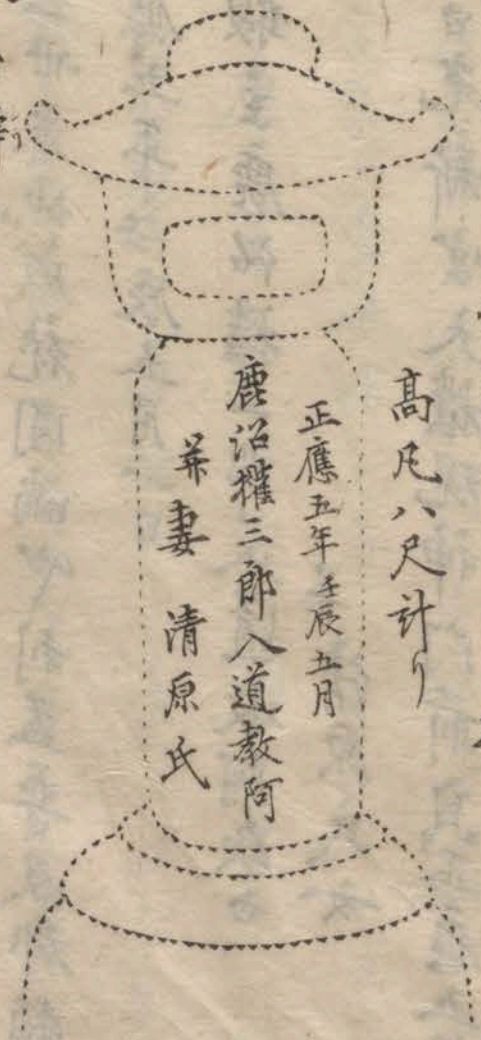 高凡八尺計り
正應五年壬辰五月
鹿沼権三郎入道教阿
并妻 清原氏